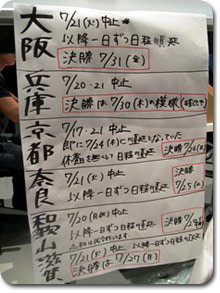 大阪
7/21(火)中止
以降一日ずつ日程の順延
決勝 7/31(金)
兵庫
7/20・21 中止
決勝は7/30(木)の模様
京都
7/17・21 中止
既に7/24(木)に順延となっていた
休養日を使い
日程の順延
奈良
7/21(火)中止
以降一日ずつ日程の順延
決勝 7/25(土)
和歌山
7/20(月・祝)中止
以降一日ずつ日程の順延
決勝
滋賀
7/21(火)中止 以降一日ずつ日程の順延
決勝は 7/27(月)